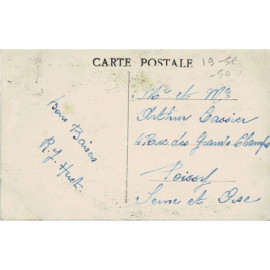 CARTE POSTALE
Bons Baisers
R. J. Huet.
Mr et Me
Arthur Cassier
4 Rue des Grands Champs
Poissy
Seine et Oise